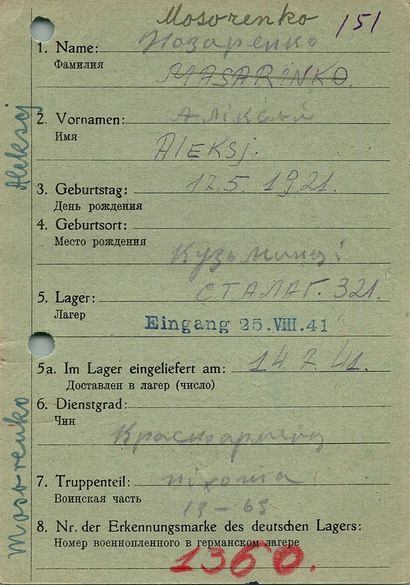 Mosorenko
151
1. Name: Назаренко
Фамилия
MASARINKO.
2. Vornamen: Аліксьй
Имя
Aleksj.
3. Geburtstag: 17.5. 1921.
День рождения
4. Geburtsort:
Место рождения
Кузьминці
5. Lager: СТАЛАГ. 321.
Лагер
Eingang 25. VIII. 41
5a. Im Lager eingeliefert am: 14.7.41.
Доставлен в лагер (число)
6. Dienstgrad:
Чин
Красноармеец
7. Truppenteil: піхота
Воинская часть
13-65
8. Nr. der Erkennungsmarke des deutschen Lagers:
Номер военнопленного в германском лагере
1360.
Aleksj
Mosorenko